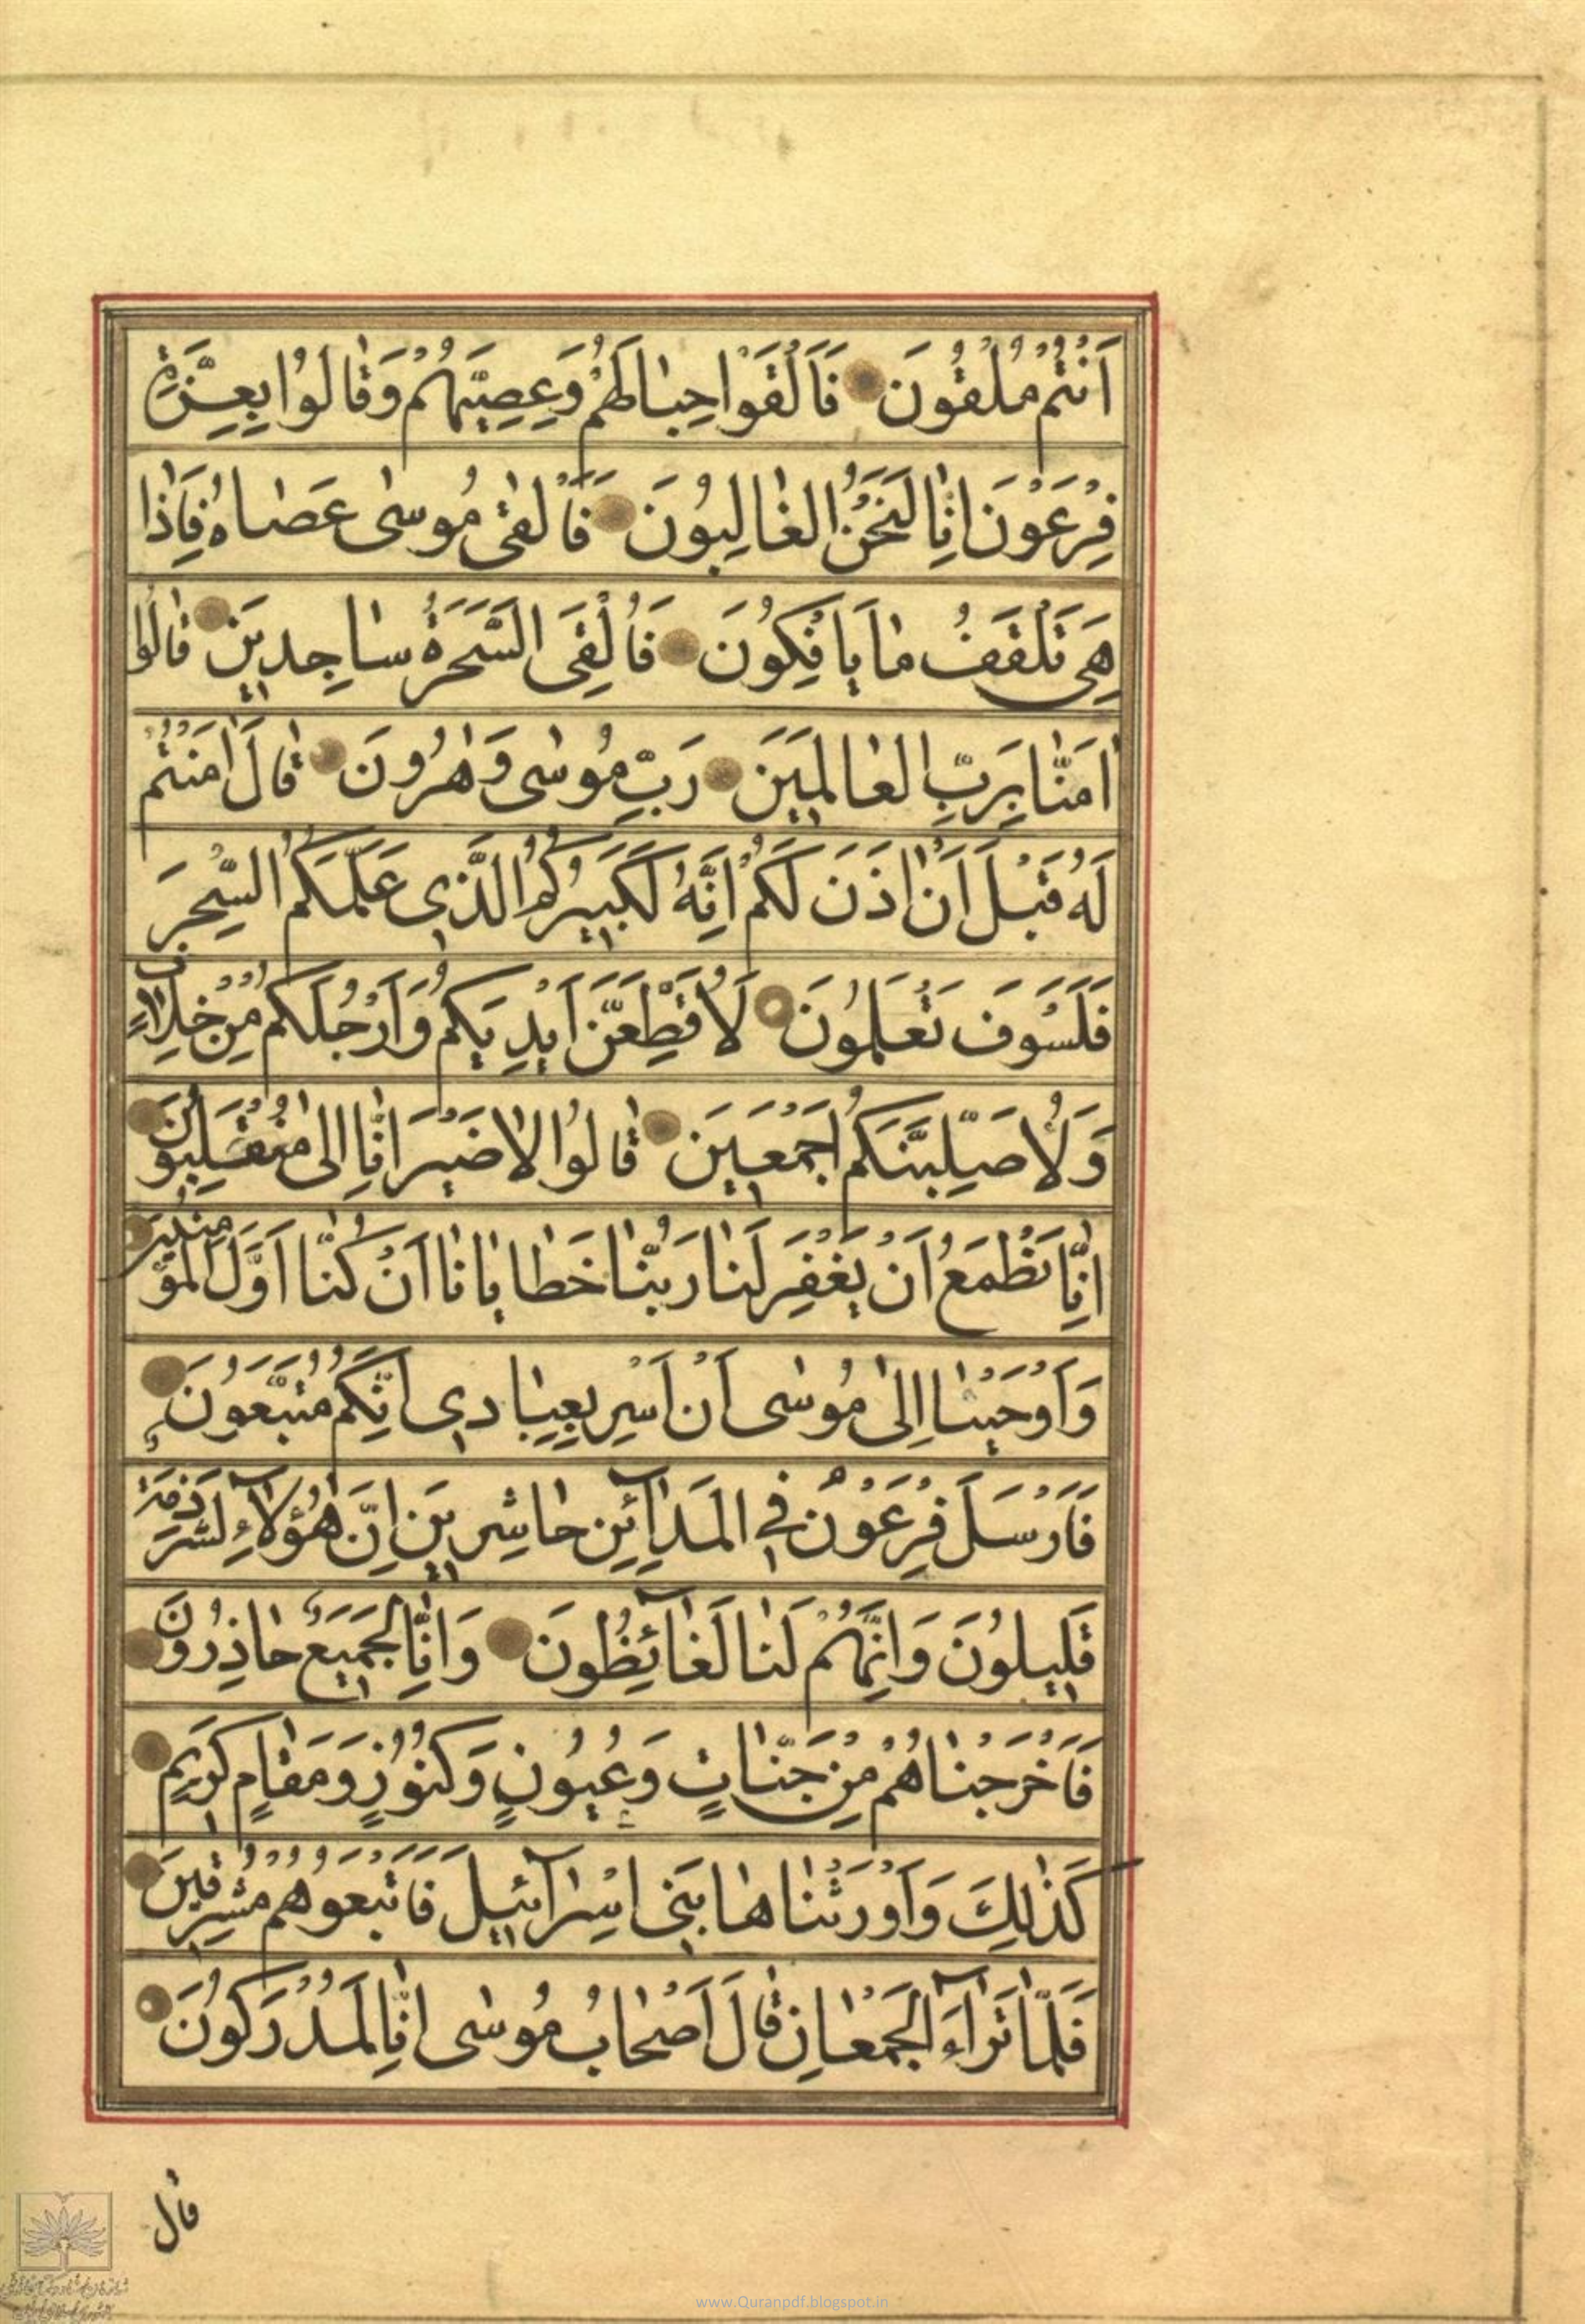 اَنْتُمْ مُلْقُونَ فَاَلْقَوْا حِبٰالَهُمْ وَعِصِيَّهُمْ وَقٰالُوا بِعِزَّةِ
فِرْعَوْنَ اِنّٰا لَنَحْنُ الْغٰالِبُونَ فَاَلْقىٰ مُوسىٰ عَصٰاهُ فَاِذٰا
هِيَ تَلْقَفُ مٰا يَاْفِكُونَ فَاُلْقِيَ السَّحَرَةُ سٰاجِدِينَ قٰالُوا
اٰمَنّٰا بِرَبِّ الْعٰالَمِينَ رَبِّ مُوسىٰ وَهٰرُونَ قٰالَ اٰمَنْتُمْ
لَهُ قَبْلَ اَنْ اٰذَنَ لَكُمْ اِنَّهُ لَكَبِيرُكُمُ الَّذِي عَلَّمَكُمُ السِّحْرَ
فَلَسَوْفَ تَعْلَمُونَ لَاُقَطِّعَنَّ اَيْدِيَكُمْ وَاَرْجُلَكُمْ مِنْ خِلٰافٍ
وَلَاُصَلِّبَنَّكُمْ اَجْمَعِينَ قٰالُوا لٰا ضَيْرَ اِنّٰا اِلىٰ مُنْقَلِبُونَ
اِنّٰا نَطْمَعُ اَنْ يَغْفِرَ لَنٰا رَبُّنٰا خَطٰايٰانٰا اَنْ كُنّٰا اَوَّلَ الْمُؤْمِنِينَ
وَاَوْحَيْنٰا اِلىٰ مُوسىٰ اَنْ اَسْرِ بِعِبٰادِي اِنَّكُمْ مُتَّبَعُونَ
فَاَرْسَلَ فِرْعَوْنُ فِي الْمَدٰآئِنِ حٰاشِرِينَ اِنَّ هٰؤُلٰآءِ لَشِرْذِمَةٌ
قَلِيلُونَ وَاِنَّهُمْ لَنٰا لَغٰآئِظُونَ وَاِنّٰا لَجَمِيعٌ حٰاذِرُونَ
فَاَخْرَجْنٰاهُمْ مِنْ جَنّٰاتٍ وَعُيُونٍ وَكُنُوزٍ وَمَقٰامٍ كَرِيمٍ
كَذٰلِكَ وَاَوْرَثْنٰاهٰا بَنِي اِسْرٰآئِيلَ فَاَتْبَعُوهُمْ مُشْرِقِينَ
فَلَمّٰا تَرٰآءَ الْجَمْعٰانِ قٰالَ اَصْحٰابُ مُوسىٰ اِنّٰا لَمُدْرَكُونَ
قال
www.Quranpdf.blogspot.in